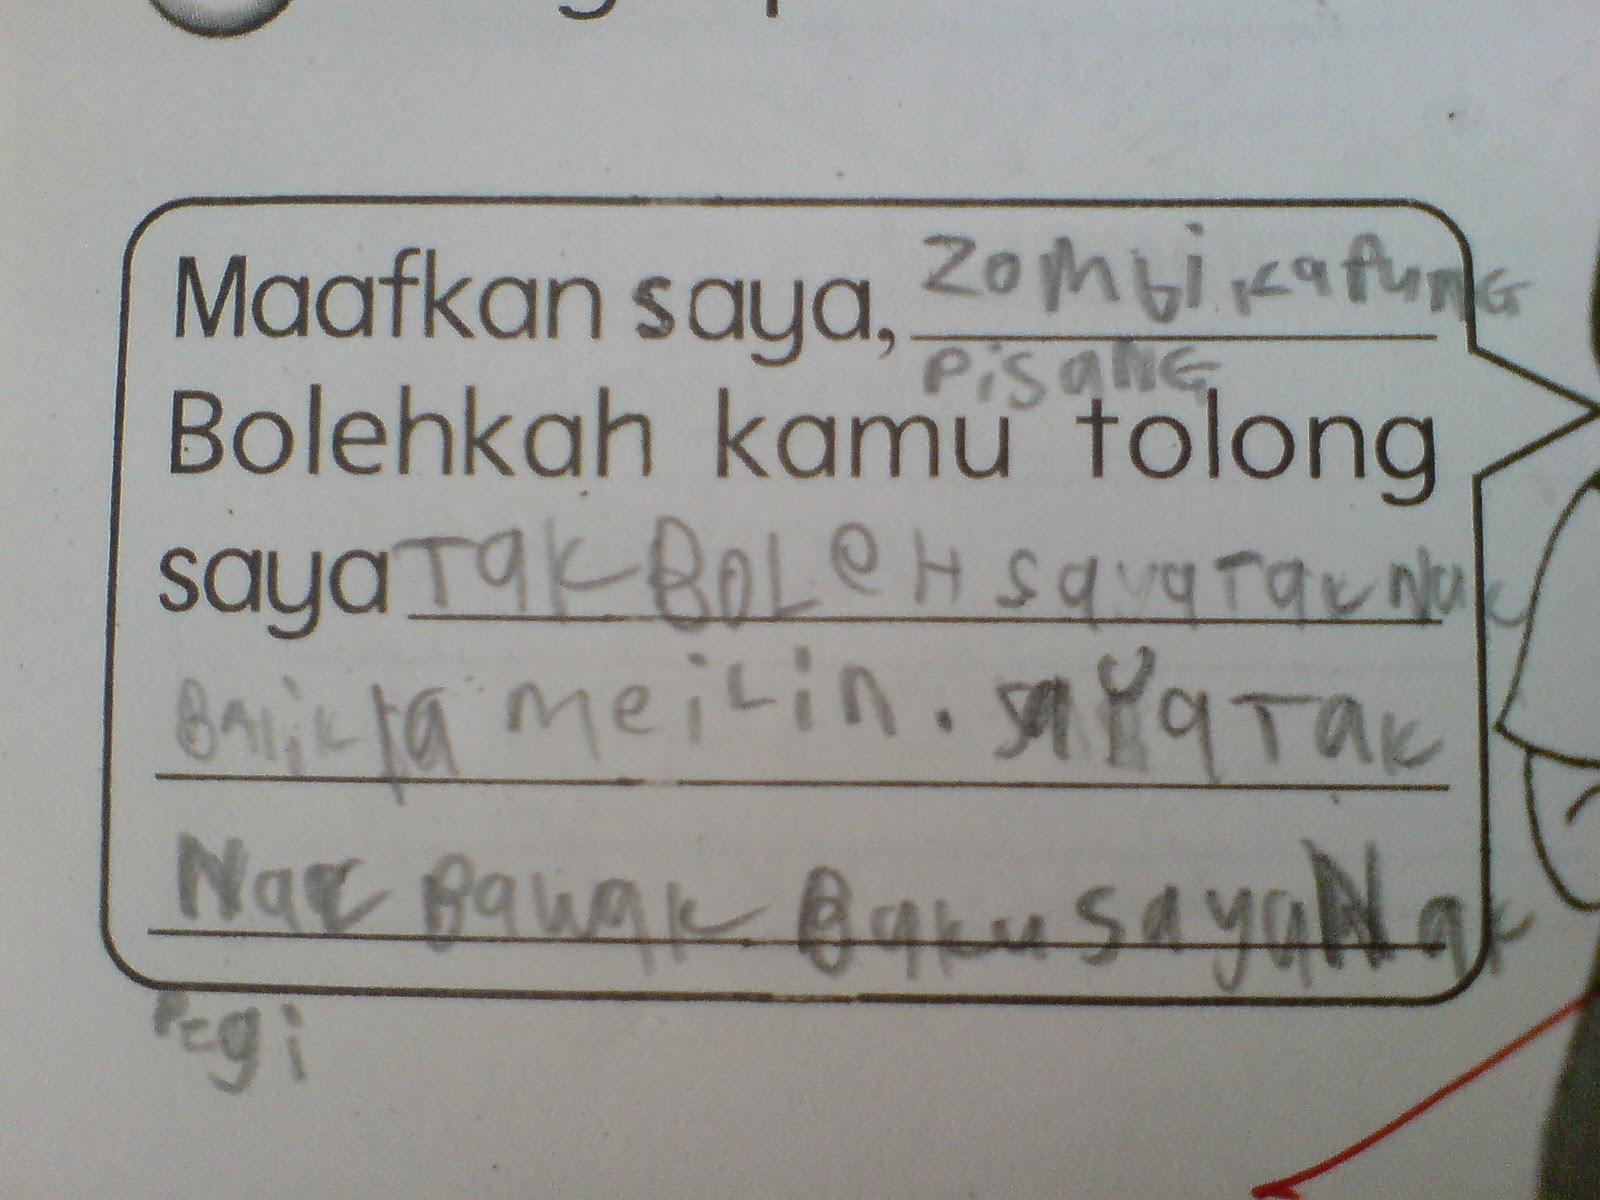 Maafkan saya, Zombi Kapung
PisaNG
Bolehkah kamu tolong
saya Tak BOLeH saya Tak Nak
Balik la meiLin. saya Tak
Nak Bawak Baku saya Nak
Pegi